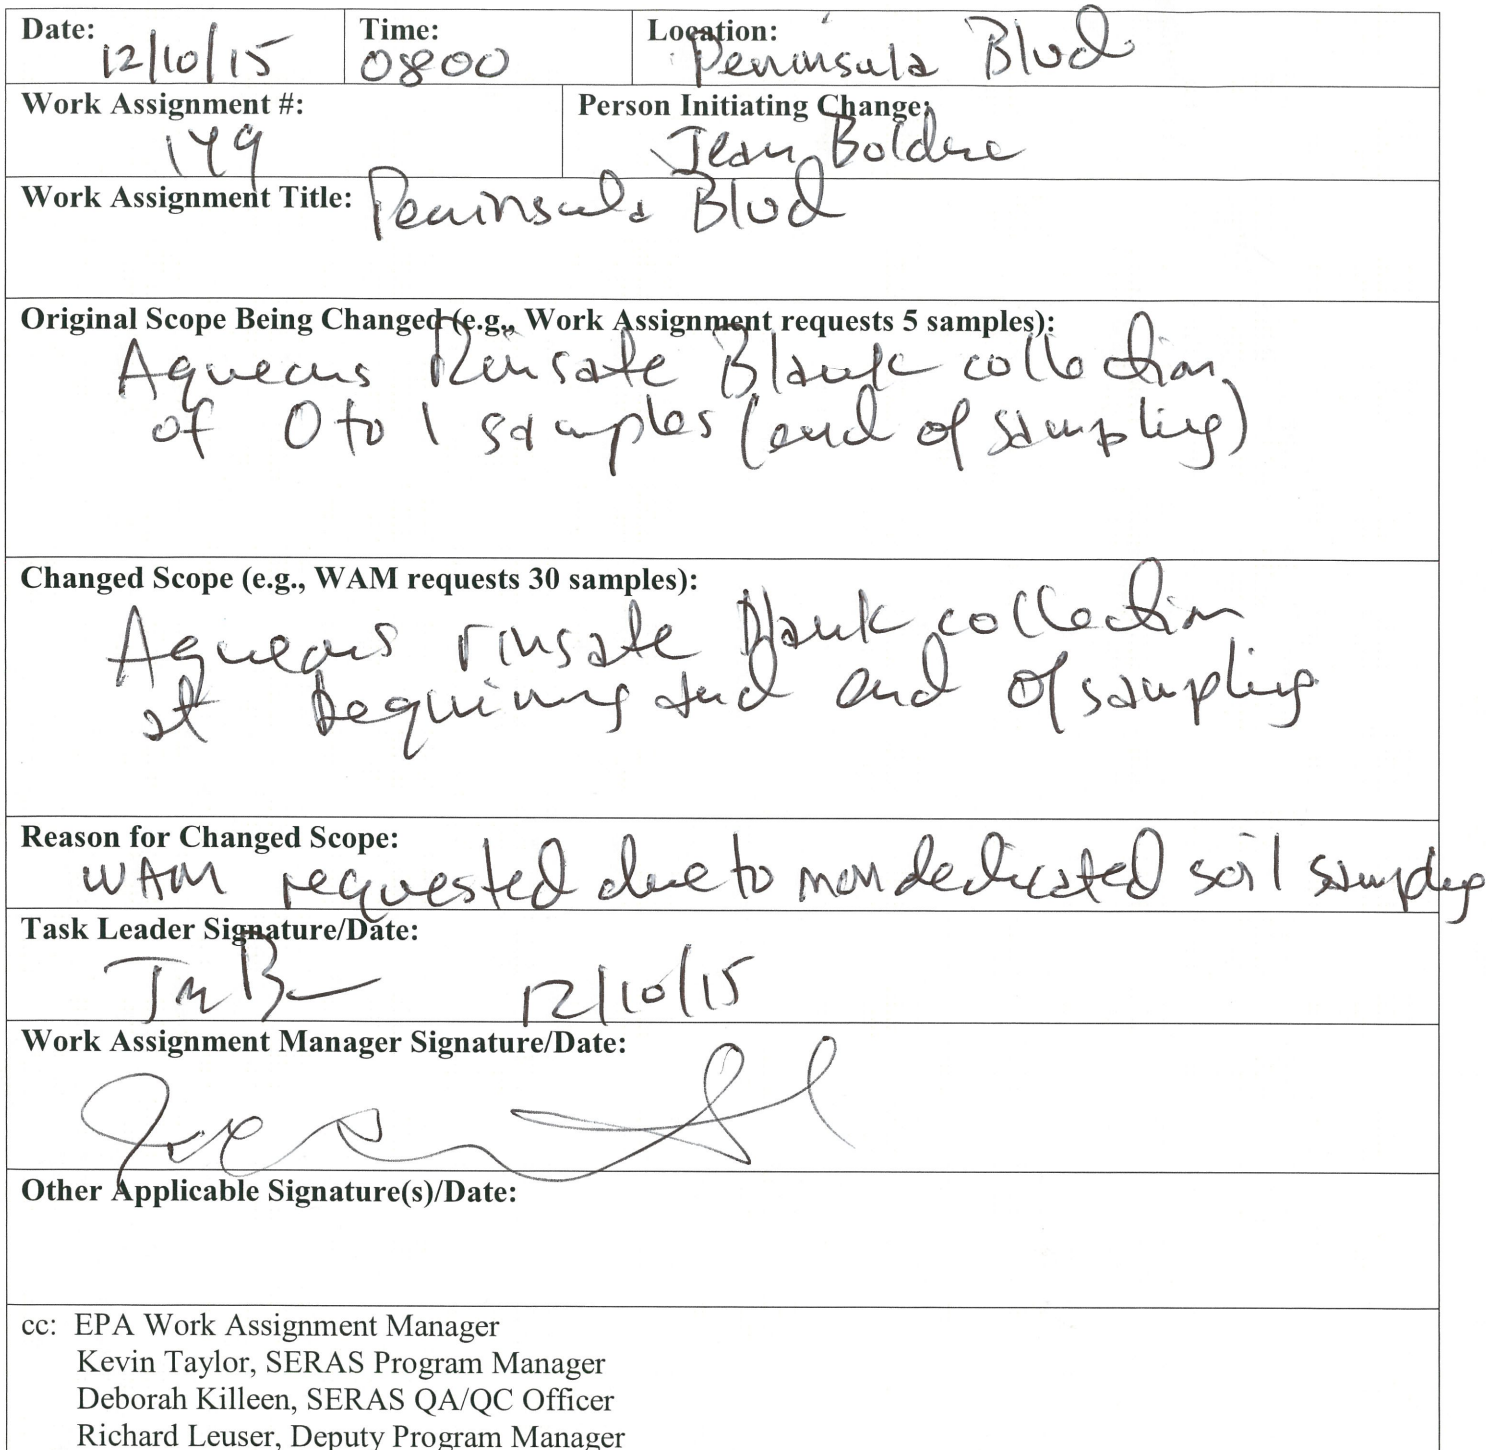 Date: 12/10/15 Time: 0800 Location: Peninsula Blvd
Work Assignment #: 149 Person Initiating Change: Jean Bolduc
Work Assignment Title: Peninsula Blvd
Original Scope Being Changed (e.g., Work Assignment requests 5 samples):
Aqueous Rinsate Blank collection
of 0 to 1 samples (end of sampling)
Changed Scope (e.g., WAM requests 30 samples):
Aqueous rinsate blank collection
at beginning and end of sampling
Reason for Changed Scope:
WAM requested due to non dedicated soil sampling
Task Leader Signature/Date:
12/10/15
Work Assignment Manager Signature/Date:
Other Applicable Signature(s)/Date:
cc: EPA Work Assignment Manager
Kevin Taylor, SERAS Program Manager
Deborah Killeen, SERAS QA/QC Officer
Richard Leuser, Deputy Program Manager